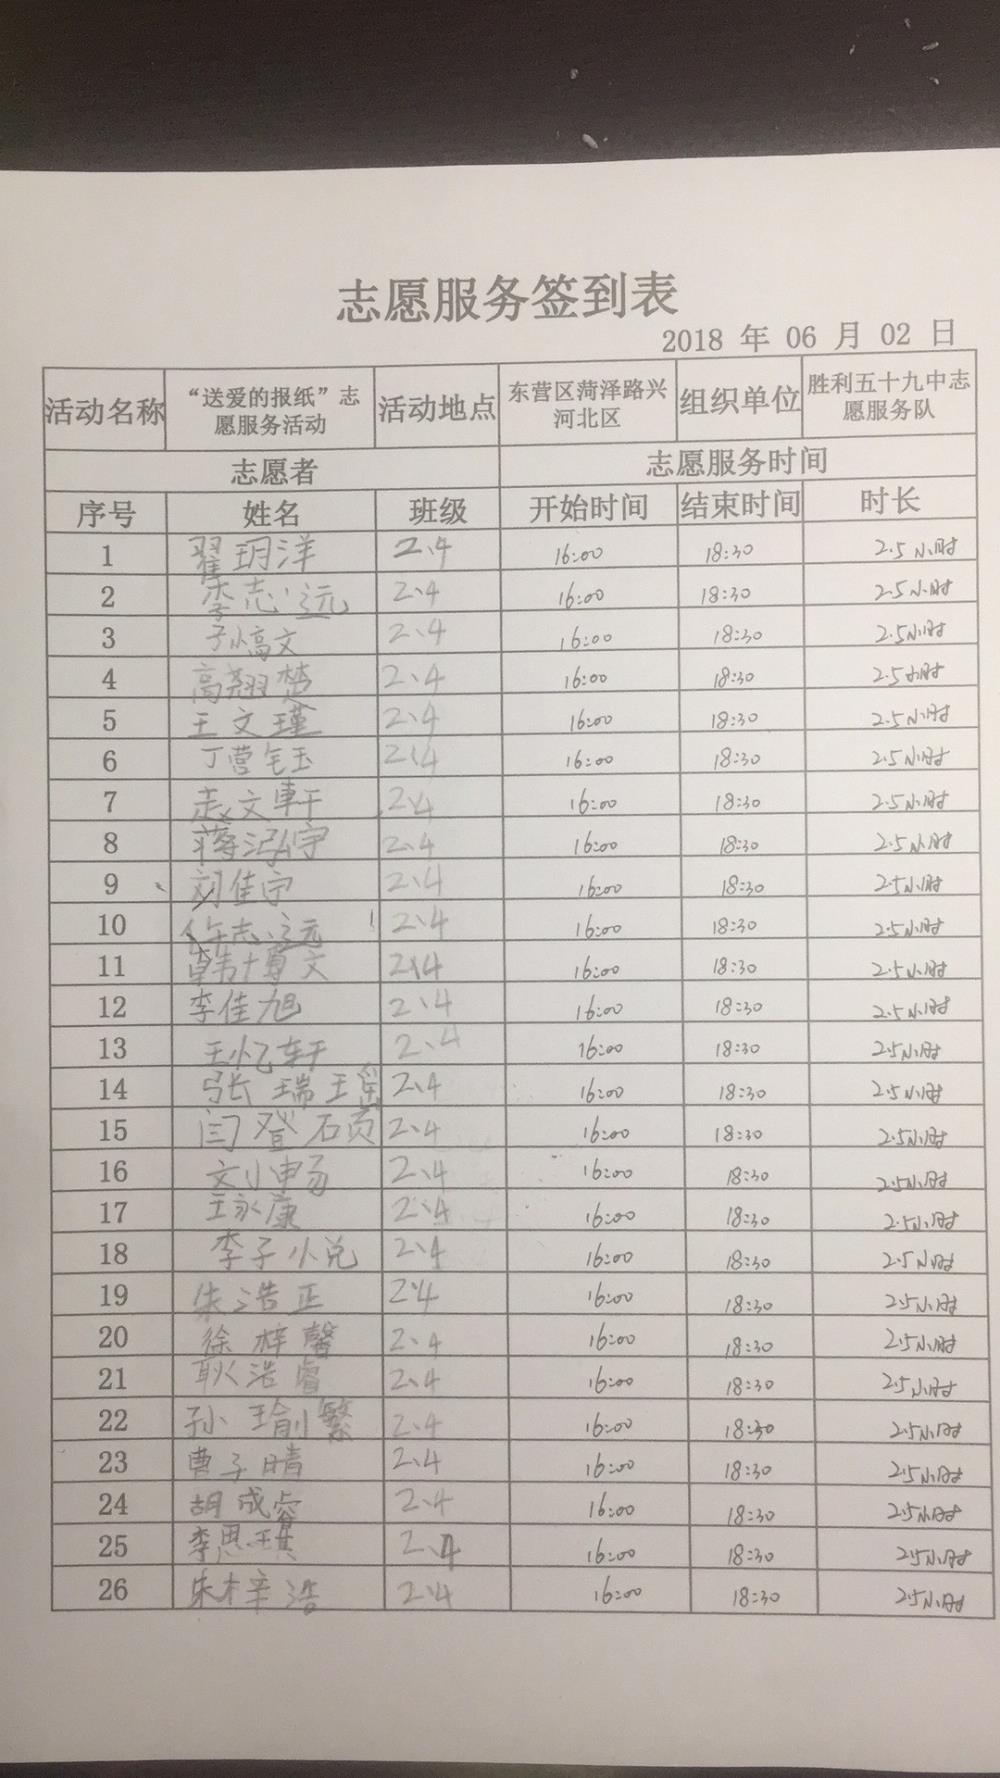 志愿服务签到表
2018 年 06 月 02 日
活动名称 “送爱的报纸”志愿服务活动 活动地点 东营区菏泽路兴河北区 组织单位 胜利五十九中志愿服务队
志愿者 志愿服务时间
序号 姓名 班级 开始时间 结束时间 时长
1 翟玥洋 2.4 16:00 18:30 2.5小时
2 李志远 2.4 16:00 18:30 2.5小时
3 孙高文 2.4 16:00 18:30 2.5小时
4 高翙楚 2.4 16:00 18:30 2.5小时
5 王文瑾 2.4 16:00 18:30 2.5小时
6 丁营钰 2.4 16:00 18:30 2.5小时
7 赵文轩 2.4 16:00 18:30 2.5小时
8 蒋泓宇 2.4 16:00 18:30 2.5小时
9 刘佳宁 2.4 16:00 18:30 2.5小时
10 志远 2.4 16:00 18:30 2.5小时
11 韩博文 2.4 16:00 18:30 2.5小时
12 李佳旭 2.4 16:00 18:30 2.5小时
13 王忆轩 2.4 16:00 18:30 2.5小时
14 张瑞瑶 2.4 16:00 18:30 2.5小时
15 闫登硕 2.4 16:00 18:30 2.5小时
16 文小畅 2.4 16:00 18:30 2.5小时
17 王永康 2.4 16:00 18:30 2.5小时
18 李子悦 2.4 16:00 18:30 2.5小时
19 朱浩正 2.4 16:00 18:30 2.5小时
20 徐梓馨 2.4 16:00 18:30 2.5小时
21 耿浩睿 2.4 16:00 18:30 2.5小时
22 孙瑜繁 2.4 16:00 18:30 2.5小时
23 曹子晴 2.4 16:00 18:30 2.5小时
24 胡成睿 2.4 16:00 18:30 2.5小时
25 李思琪 2.4 16:00 18:30 2.5小时
26 朱梓浩 2.4 16:00 18:30 2.5小时